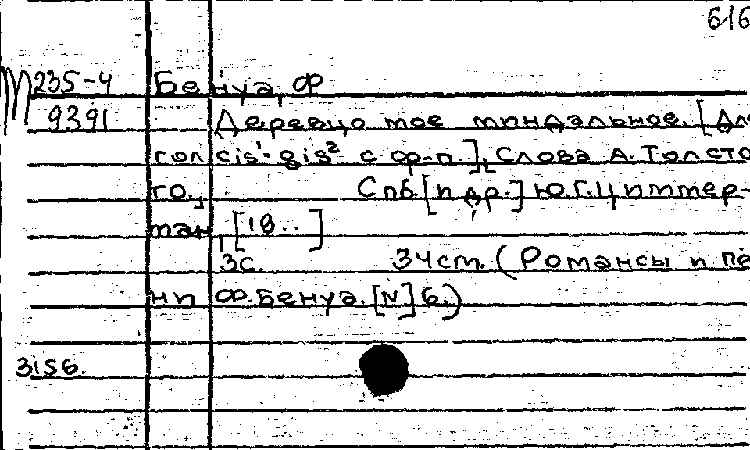 616
М 235-4 Бенуа, Ф
9391 Деревцо мое миндальное. [Для
гол cis¹-gis² с ф-п.], Слова А. Толсто
го., Спб. [и др.] Ю.Г. Циммер-
ман, [18..]
3с. 34см. (Романсы и пе
ни Ф. Бенуа. [N] 6.)
3156.